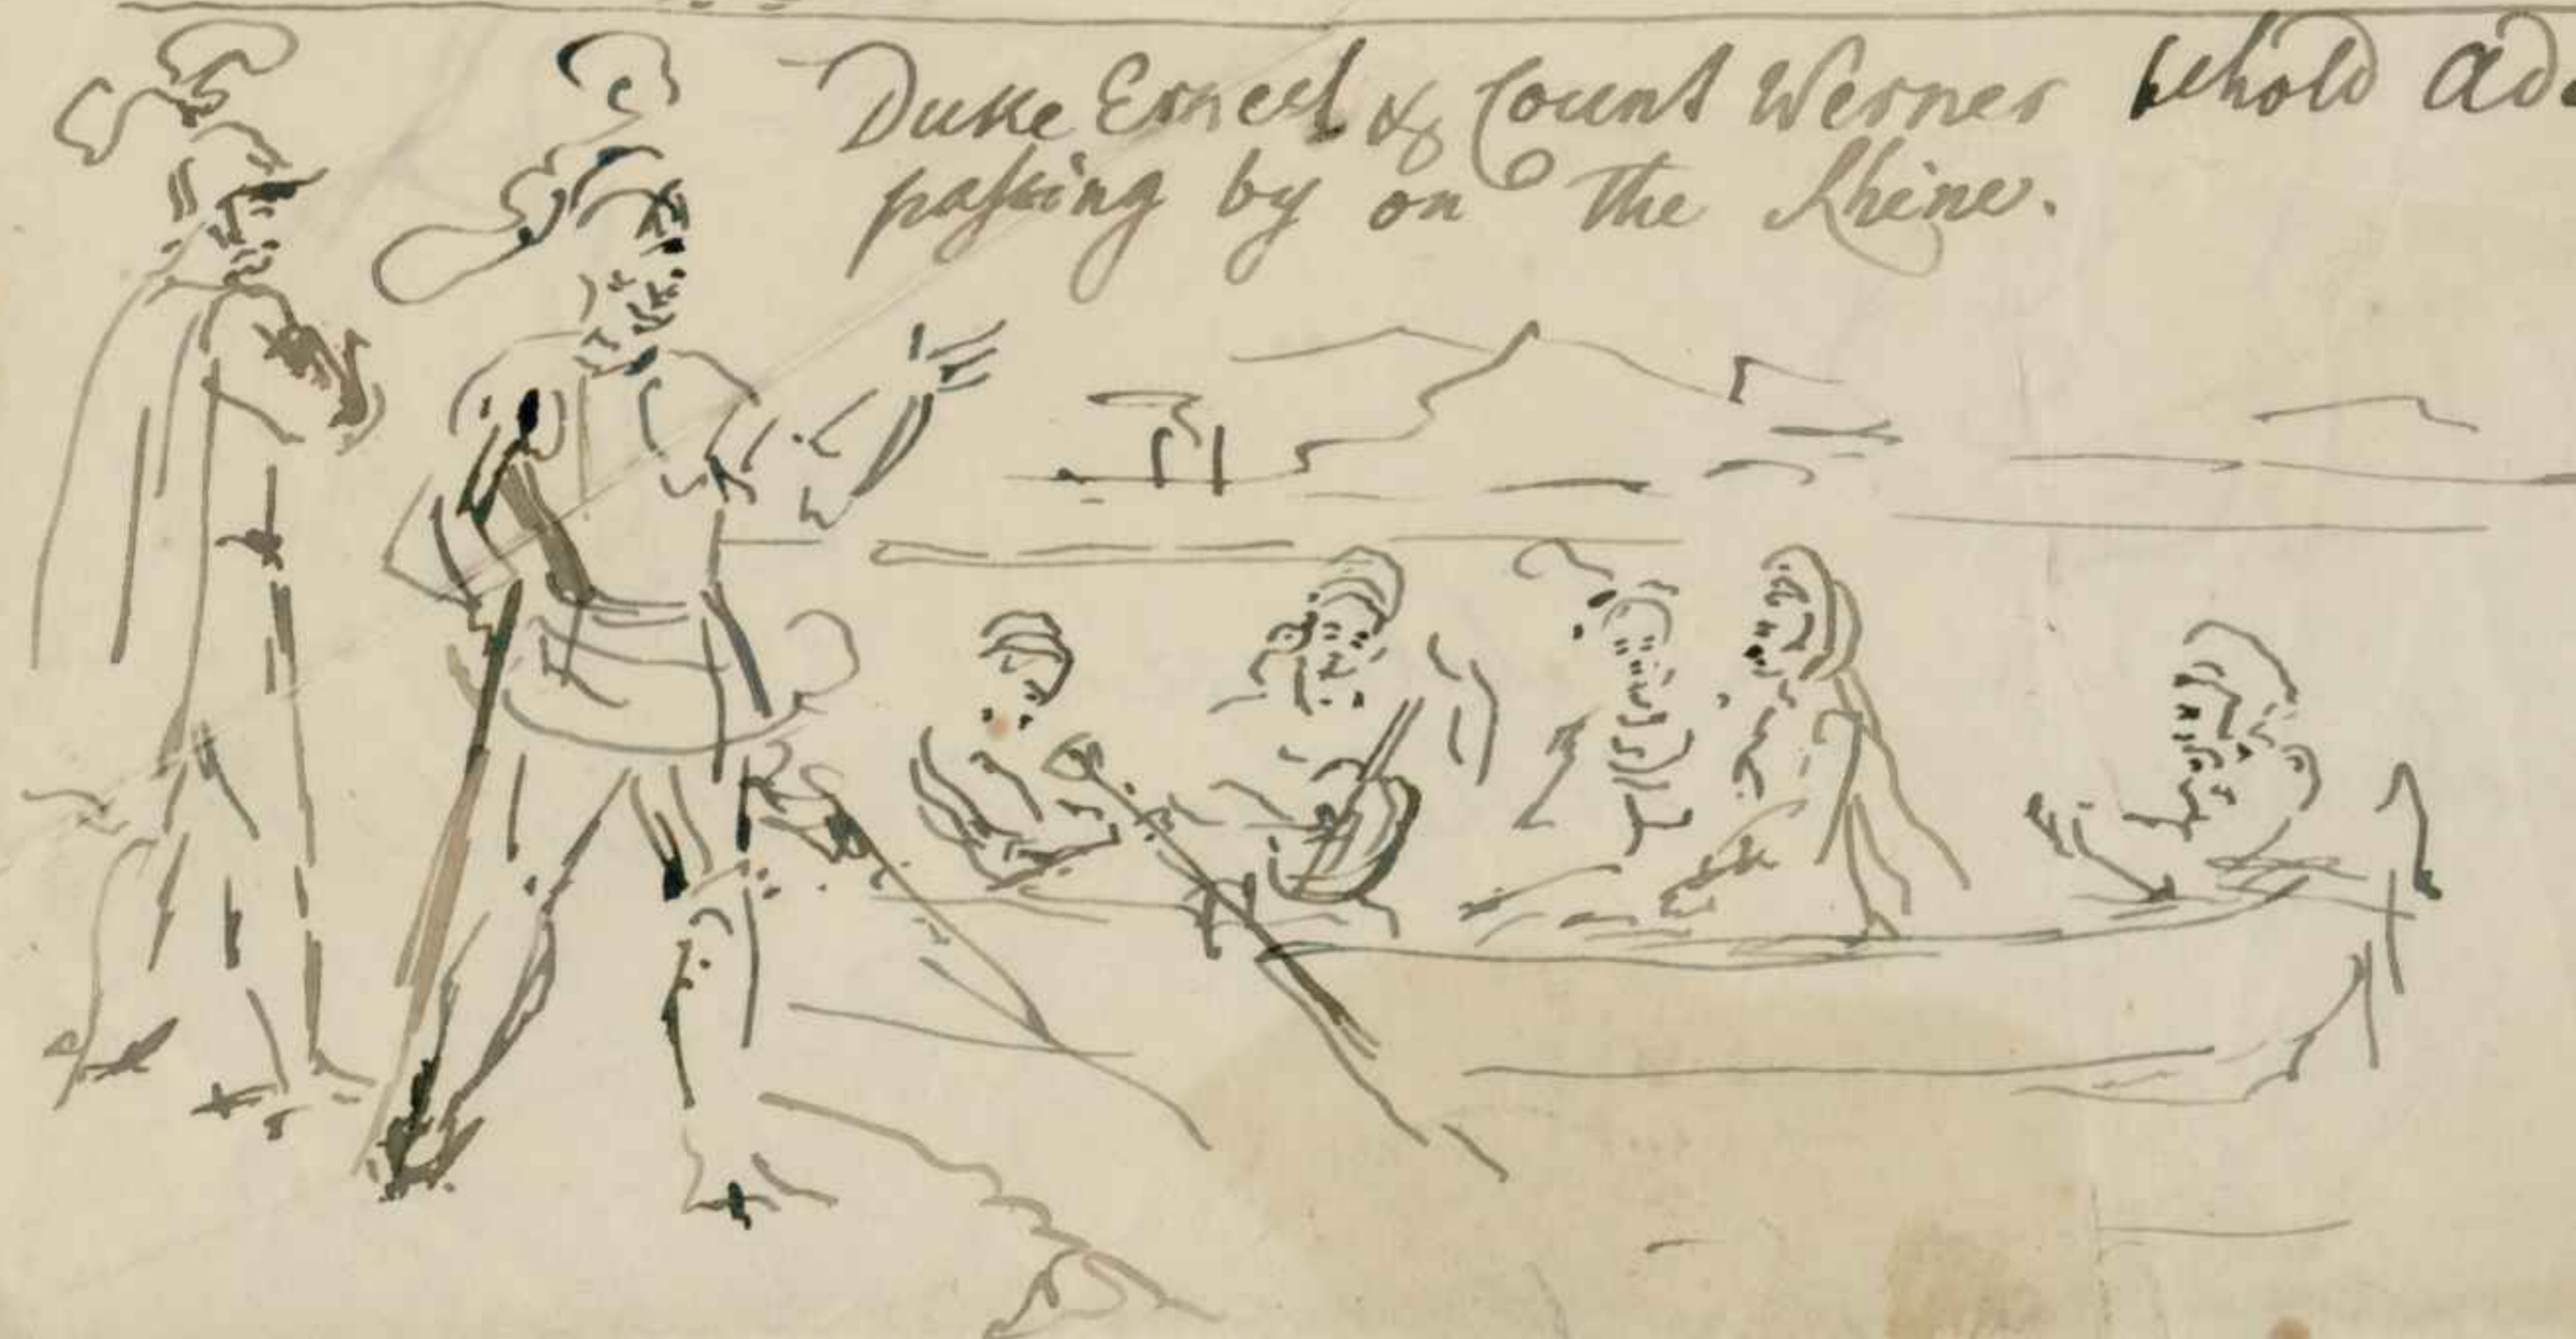 Duke Ernest & Count Werner behold
paſsing by on the Rhine.